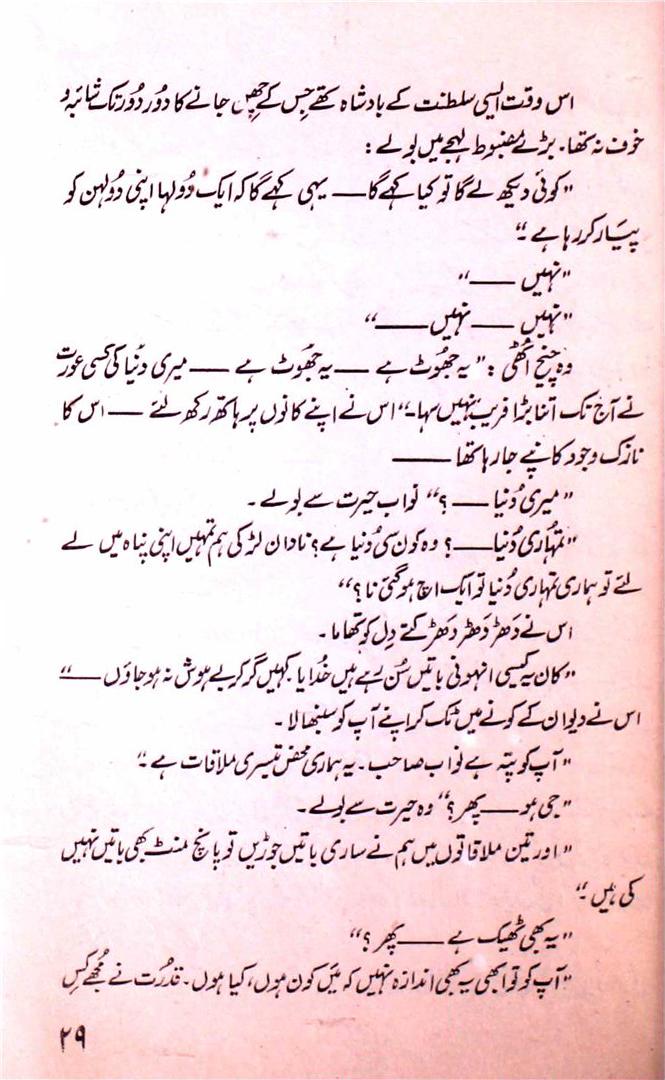 اس وقت ایسی سلطنت کے بادشاہ تھے جس کے چھن جانے کا دُور دُور تک شائبہ و
خوف نہ تھا۔ بڑے مضبوط لہجے میں بولے :
”کوئی دیکھ لے گا تو کیا کہے گا —— یہی کہے گا کہ ایک دُولہا اپنی دُولہن کو
پیَار کر رہا ہے ۔“
”نہیں ——“
”نہیں —— نہیں ——“
وہ چیخ اُٹھی : ”یہ جھُوٹ ہے —— یہ جھُوٹ ہے —— میری دُنیا کی کسی عورت
نے آج تک اتنا بڑا فریب نہیں سہا۔“ اس نے اپنے کانوں پر ہاتھ رکھ لئے —— اس کا
نازک وجود کانپے جا رہا تھا ——
”میری دُنیا —— ؟“ نواب حیرت سے بولے ۔
”تمہُاری دُنیا —— ؟ وہ کون سی دُنیا ہے ؟ نادان لڑکی ہم تمہیں اپنی پناہ میں لے
لئے تو ہماری تمہاری دُنیا تو ایک اچ ہو گئی نا ؟“
اس نے دَھڑ دَھڑ دَھڑکتے دِل کو تھاما ۔
”کان یہ کیسی انہونی باتیں سُن رہے ہیں خُدایا کہیں گر کر بے ہوش نہ ہو جاؤں ——“
اس نے دیوان کے کونے میں ٹک کر اپنے آپ کو سنبھالا ۔
”آپ کو پتہ ہے نواب صاحب ۔ یہ ہماری محض تیسری ملاقات ہے ۔“
”جی ہو —— پھر ؟“ وہ حیرت سے بولے ۔
”اور تین ملاقاتوں میں ہم نے ساری باتیں جوڑیں تو پانچ منٹ بھی باتیں نہیں
کی ہیں ۔“
”یہ بھی ٹھیک ہے —— پھر ؟“
”آپ کو تو ابھی یہ بھی اندازہ نہیں کہ میَں کون ہوں، کیا ہوں ۔ قدرُت نے مُجھے کِس
۲۹